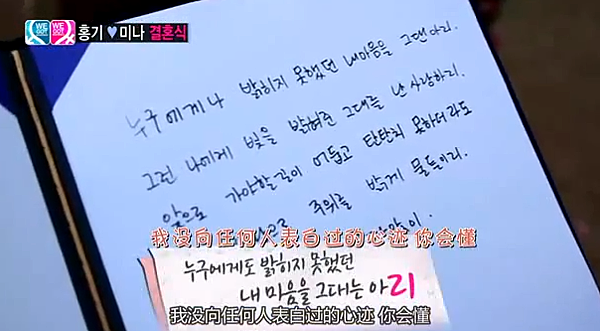 WE GOT WE GOT 홍기♥미나 결혼식
누구에게나 밝히지 못했던 내마음을 그댄아리.
그런 나에게 빛을 밝혀준 그대를 난 사랑하리.
앞으로 가야할길이 어둡고 탄탄치 못하더라도
으로 주위를 밝게 물들이리.
我没向任何人表白过的心迹 你会懂
누구에게도 밝히지 못했던
내 마음을 그대는 아리
我没向任何人表白过的心迹 你会懂